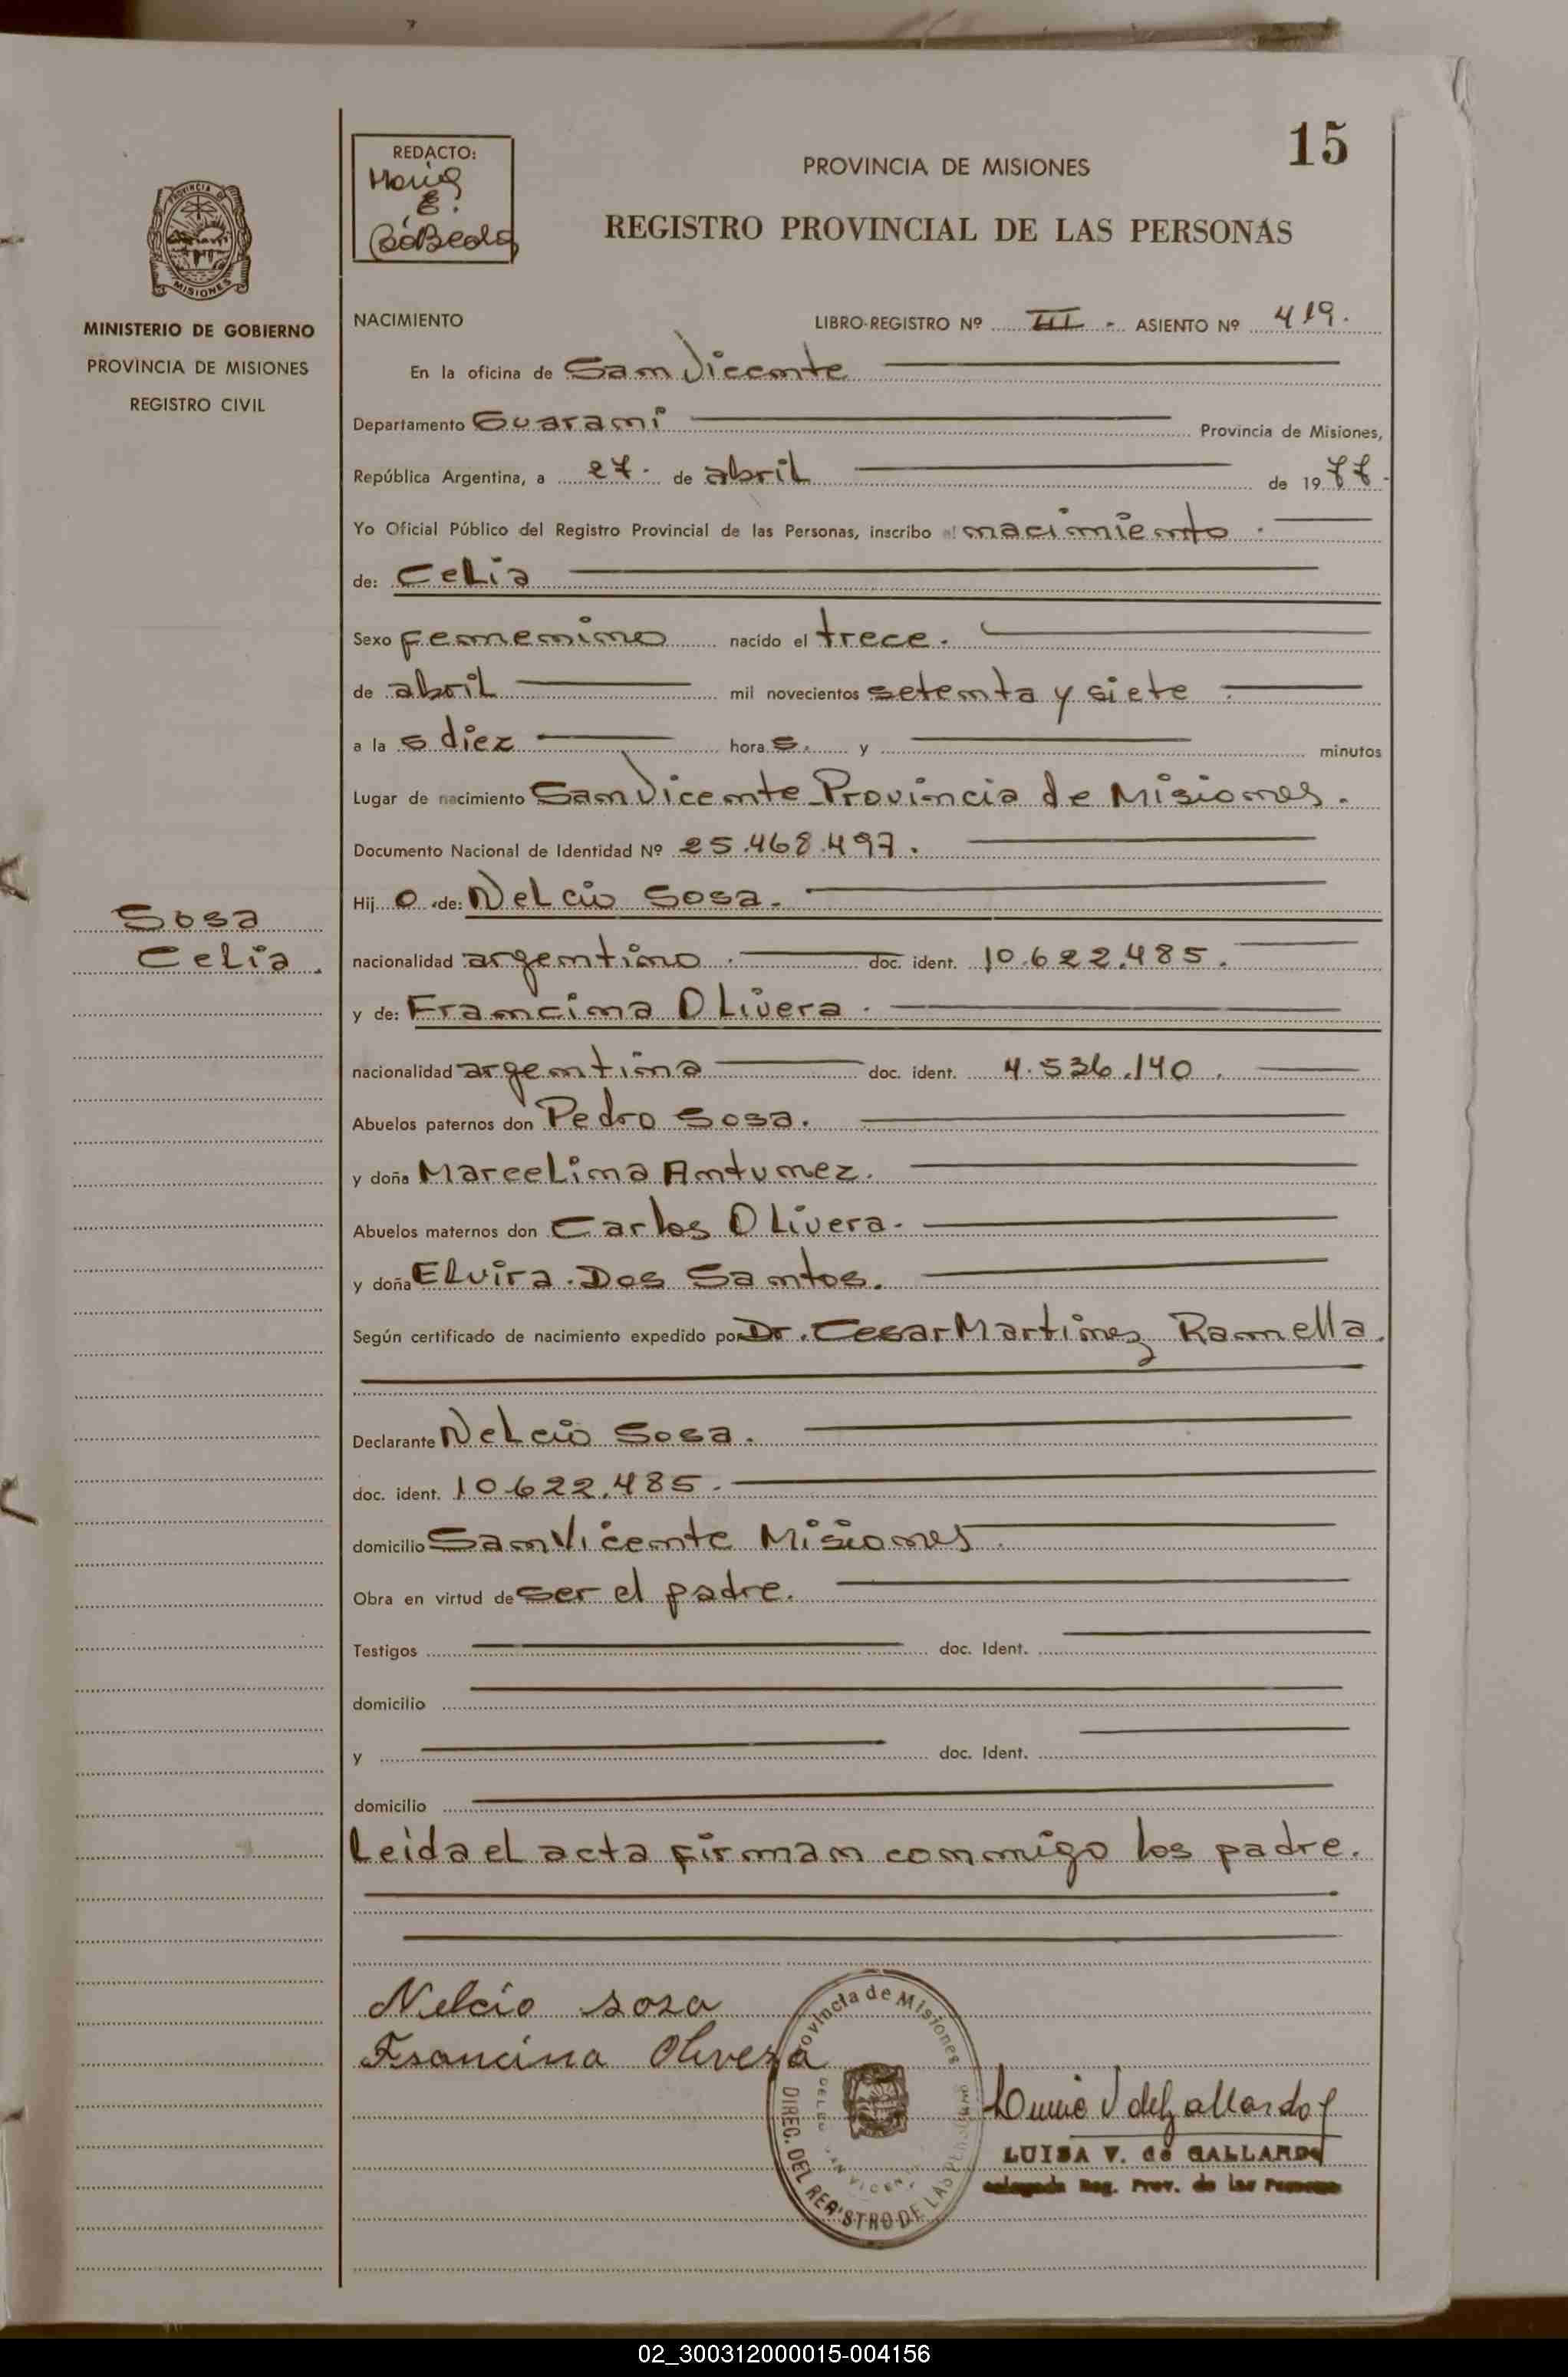 15
REDACTO:
Maria
E.
PROVINCIA DE MISIONES
REGISTRO PROVINCIAL DE LAS PERSONAS
PROVINCIA DE
MISIONES
MINISTERIO DE GOBIERNO
PROVINCIA DE MISIONES
REGISTRO CIVIL
NACIMIENTO LIBRO-REGISTRO Nº III - ASIENTO Nº 419.
En la oficina de San Vicente
Departamento Guarani Provincia de Misiones,
República Argentina, a 27. de abril de 1977-
Yo Oficial Público del Registro Provincial de las Personas, inscribo el nacimiento.
de: Celia
Sexo femenino nacido el trece.
de abril mil novecientos setenta y siete.
a las diez horas. y minutos
Lugar de nacimiento San Vicente Provincia de Misiones.
Documento Nacional de Identidad Nº 25.468.497.
Hijo de: Nelcio Sosa.
Sosa
Celia.
nacionalidad argentino. doc. ident. 10.622.485.
y de: Francina Olivera.
nacionalidad argentina doc. ident. 4.536.140.
Abuelos paternos don Pedro Sosa.
y doña Marcelina Antunez.
Abuelos maternos don Carlos Olivera.
y doña Elvira Dos Santos.
Según certificado de nacimiento expedido por Dr. Cesar Martinez Ramella.
Declarante Nelcio Sosa.
doc. ident. 10.622.485.
domicilio San Vicente Misiones.
Obra en virtud de ser el padre.
Testigos doc. Ident.
domicilio
y doc. Ident.
domicilio
Leida el acta firman conmigo los padre.
Nelcio sosa
Francina Olivera
Provincia de Misiones
DIREC. DEL REGISTRO DE LAS PERSONAS
LUISA V. de GALLARDO
Delegada Reg. Prov. de las Personas
02_300312000015-004156